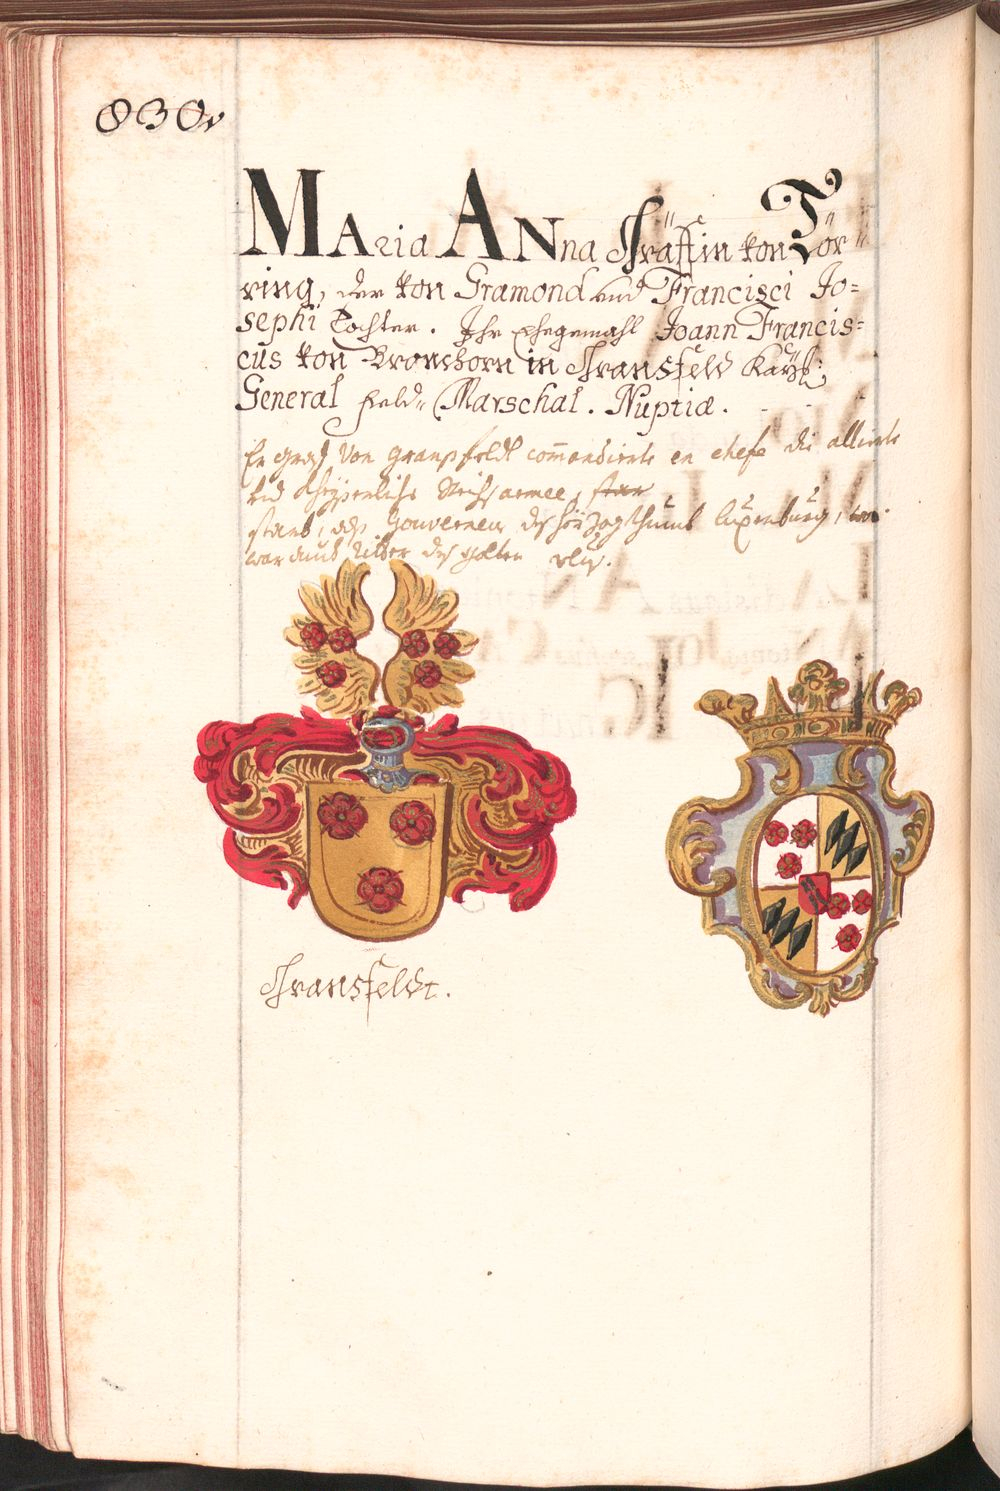 830.
MAria ANna Gräffin von Tör-
ring, der von Gramond und Francisci Jo=
sephi Tochter. Ihr Ehegemahl Joann Francis=
cus von Bronchorn in Gransfeld Kaÿß:
General Feld= Marschal. Nuptiæ.
Er Graf Von Gransfeldt commandierte en chefe die allierte
und Reichsarmee,
starb, als Gouverneur des Herzogthums luxenburg,
war auch Ritter des golten vliß.
Gransfeldt.